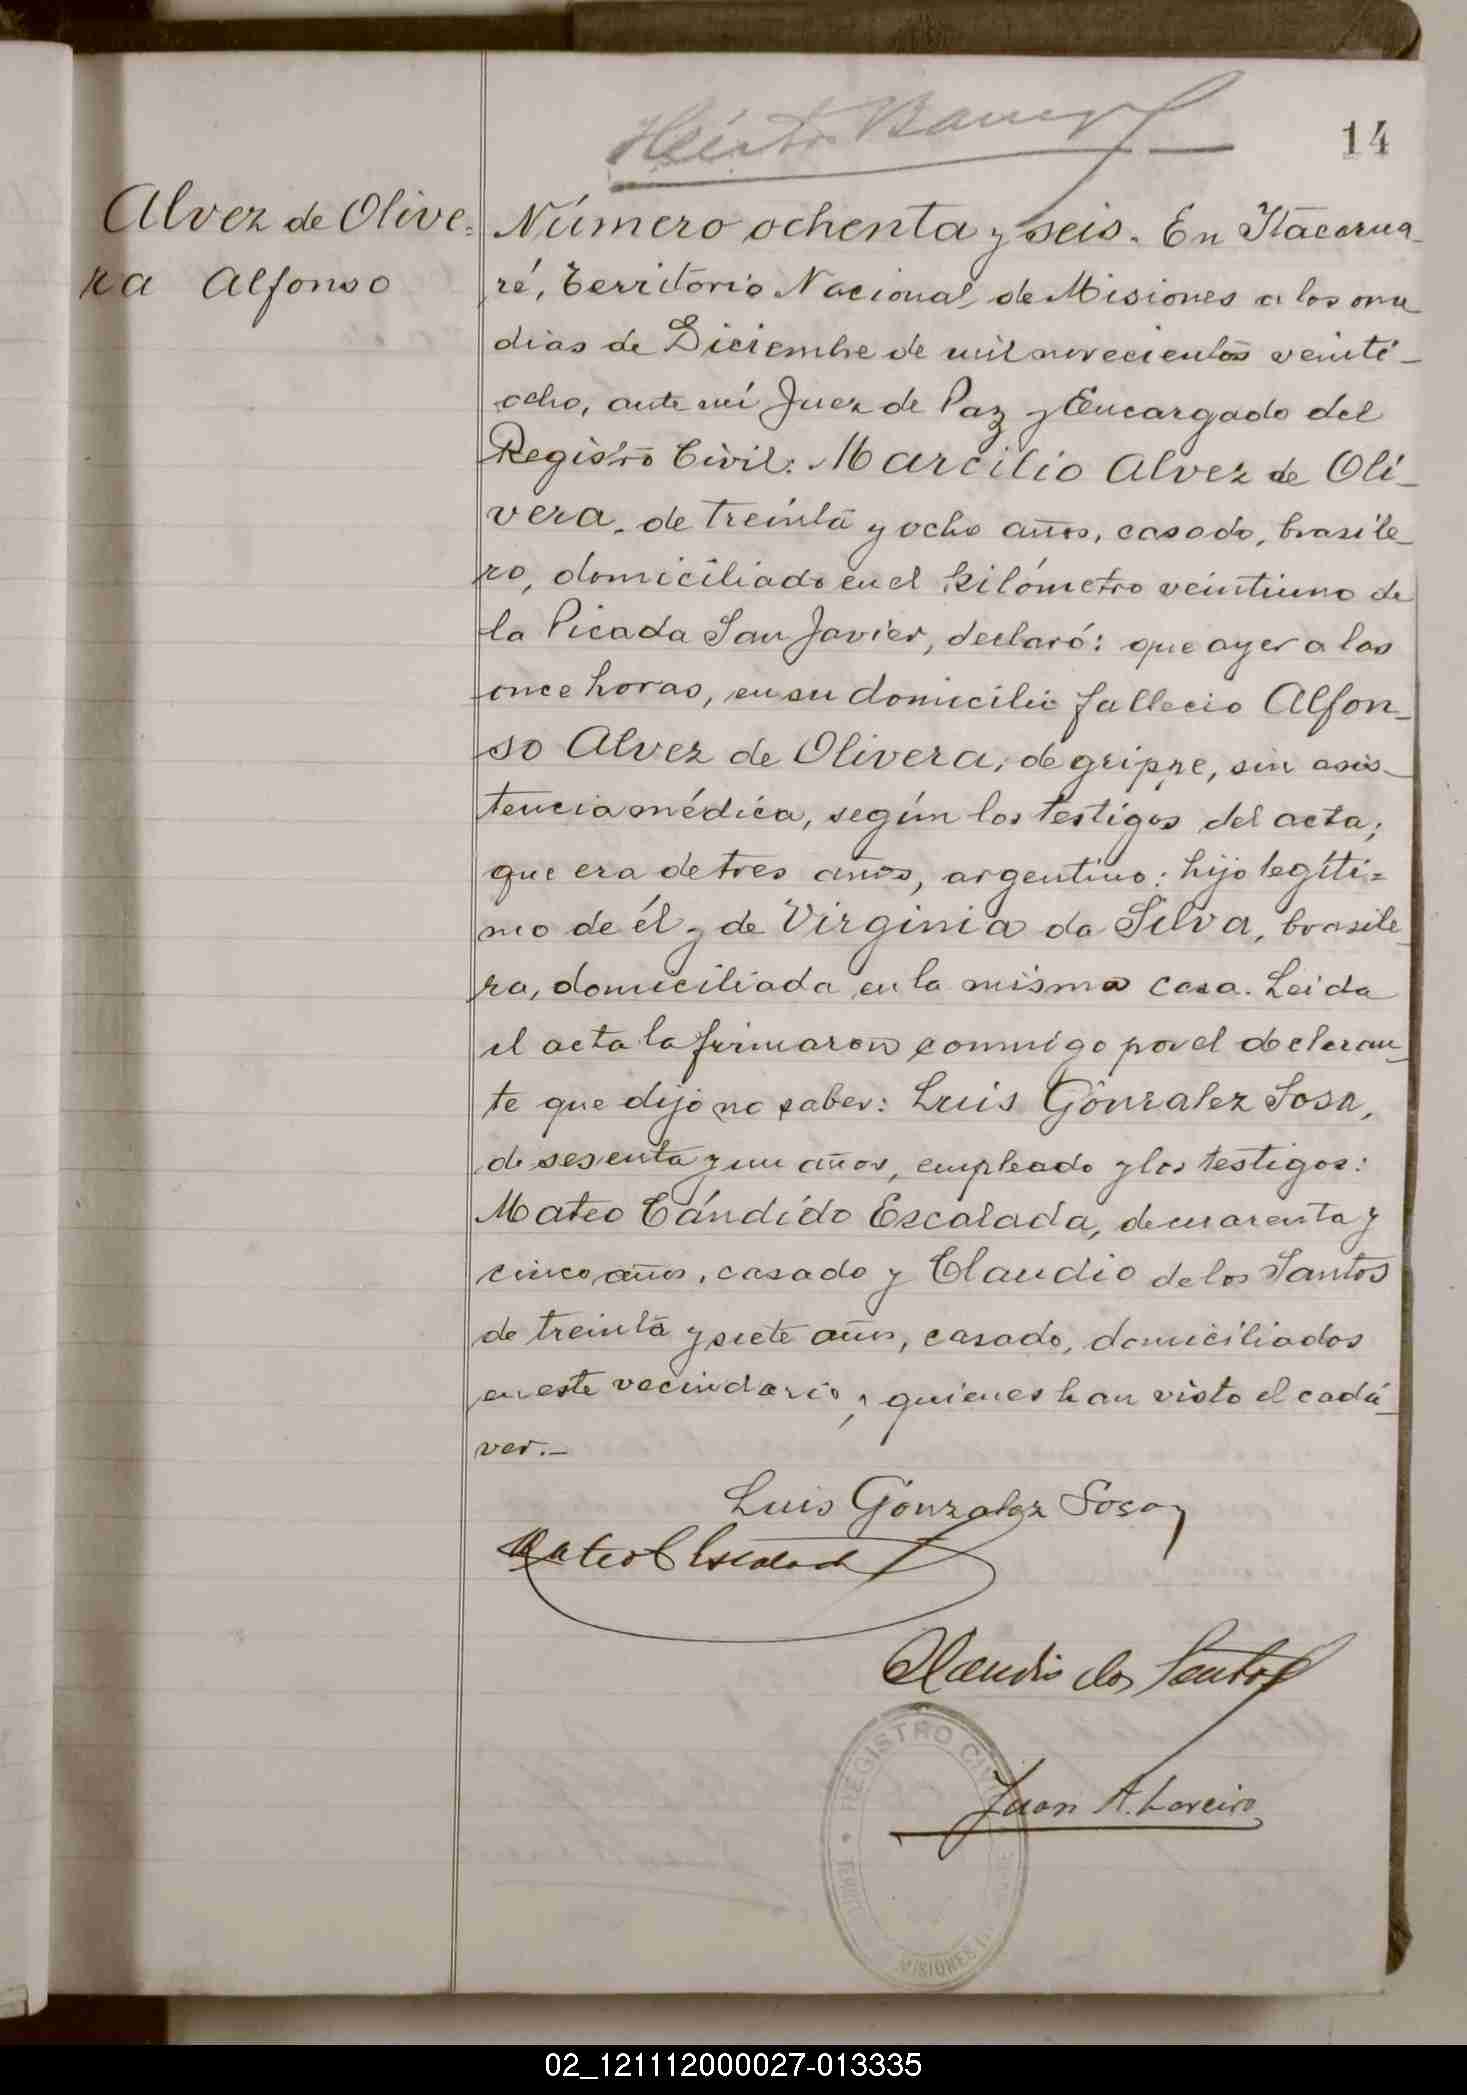 14
Alvez de Olive=
ra Alfonso
Número ochenta y seis. En Itacarua-
ré, Territorio Nacional de Misiones a los once
dias de Diciembre de mil novecientos veinti-
ocho, ante mi Juez de Paz y Encargado del
Registro Civil: Marcilio Alvez de Oli-
vera, de treinta y ocho años, casado, brasile-
ro, domiciliado en el kilómetro veintiuno de
la Picada San Javier, declaró: que ayer a las
once horas, en su domicilio fallecio Alfon-
so Alvez de Olivera, de grippe, sin asis-
tencia médica, según los testigos del acta;
que era de tres años, argentino: hijo legíti=
mo de él y de Virginia da Silva, brasile-
ra, domiciliada en la misma casa. Leida
el acta la firmaron conmigo por el declaran-
te que dijo no saber: Luis Gonzalez Sosa,
de sesenta y un años, empleado y los testigos:
Mateo Cándido Escalada, de cuarenta y
cinco años, casado y Claudio de los Santos
de treinta y siete años, casado, domiciliados
en este vecindario, quienes han visto el cadá-
ver.-
Luis Gonzalez Sosa
Mateo C Escalada
Claudio dos Santos
Juan A. Loreiro
REGISTRO CI
MISIONES
02_121112000027-013335